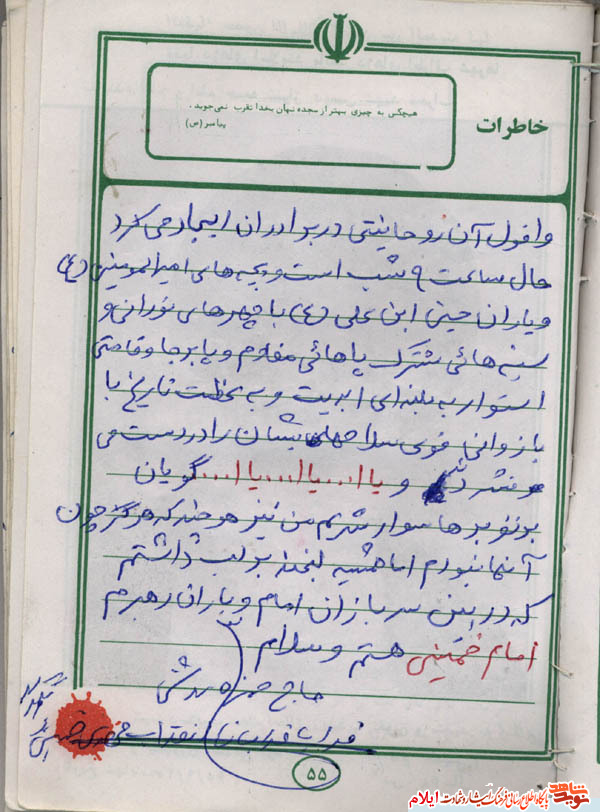 خاطرات
هیچکس به چیزی بهتر از سجده نهان بخدا تقرب نمی‌جوید.
پیامبر (ص)
و افول آن روحانیتی در برادران ایجاد می کرد
حال ساعت ۹ شب است و بچه های امیرالمومنین (ع)
و یاران حسین ابن علی (ع) با چهره های نورانی و
سینه هائی مشترک پاهائی مقاوم و پابرجا و قامتی
استوار به بلندای ابدیت و به عظمت تاریخ با
بازوانی قوی سلاحهایشان را در دست می
فشردند و یا ا... یا ا... یا ا... گویان
بر نفربرها سوار شدیم من نیز هرچند که هرگز چون
آنها نبودم اما همیشه لبخند بر لب داشتم
که در بین سربازان امام و یاران رهبرم
امام خمینی هستم و سلام
حاج
۵۵
شاهد
نوید
ایلام